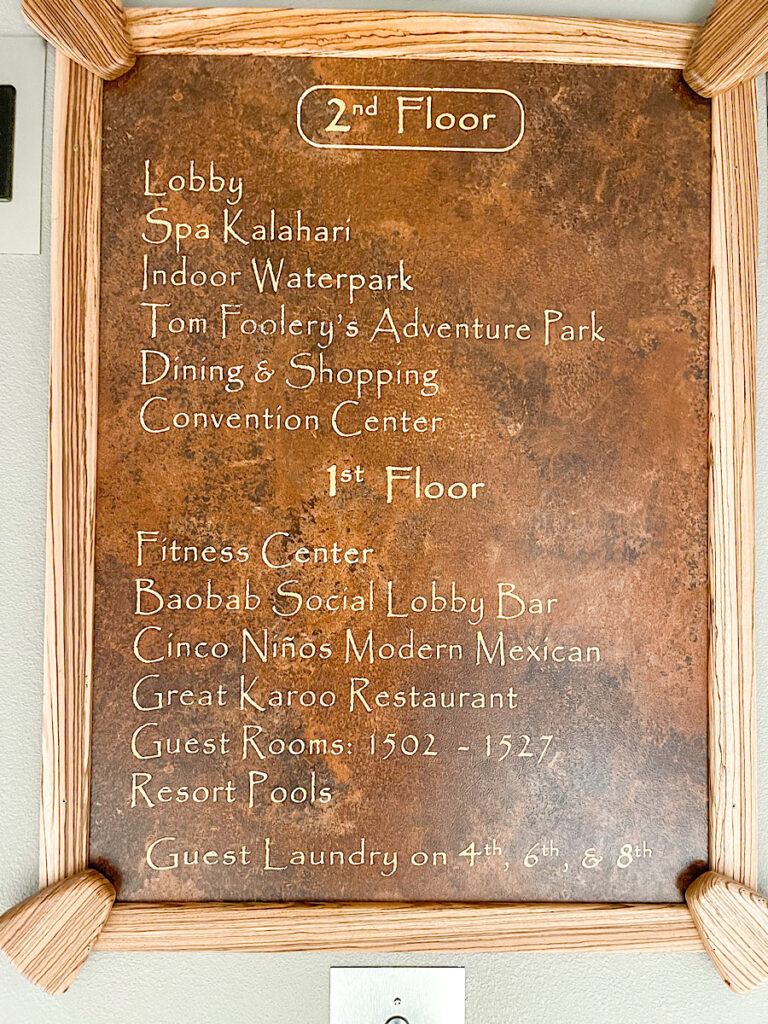 2nd Floor
Lobby
Spa Kalahari
Indoor Waterpark
Tom Foolery's Adventure Park
Dining & Shopping
Convention Center
1st Floor
Fitness Center
Baobab Social Lobby Bar
Cinco Niños Modern Mexican
Great Karoo Restaurant
Guest Rooms: 1502 - 1527
Resort Pools
Guest Laundry on 4th, 6th, & 8th